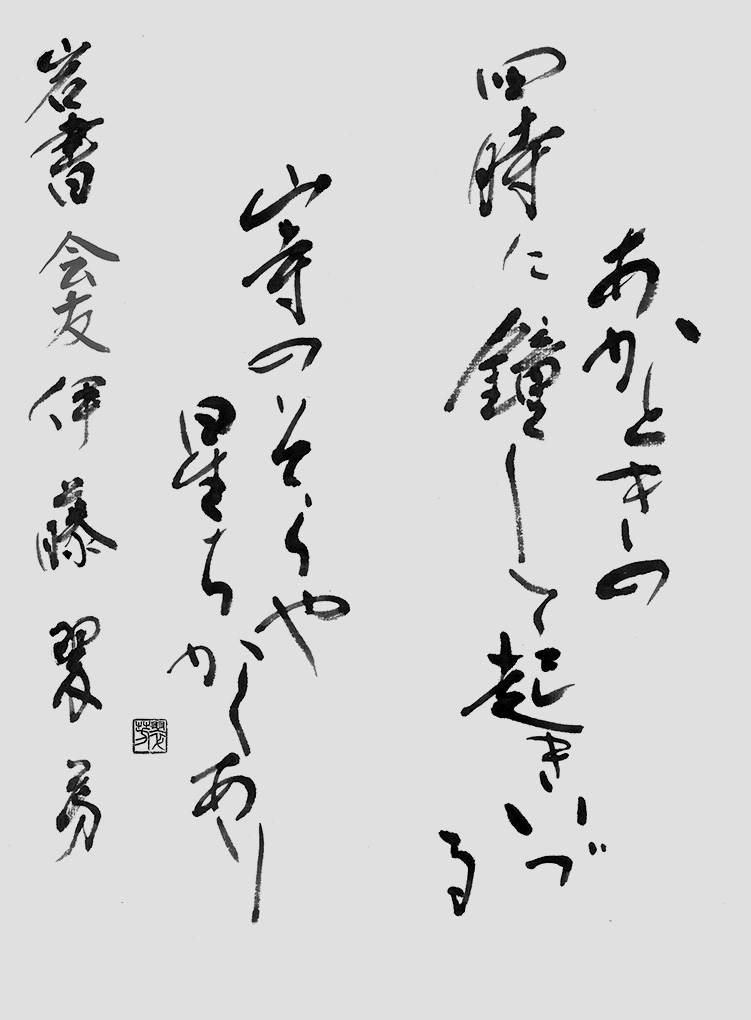 あかときの
四時に鐘して起きいづ
る
山寺のそらや
星ちかくあり
岩書会友 伊藤翠芳
翠芳